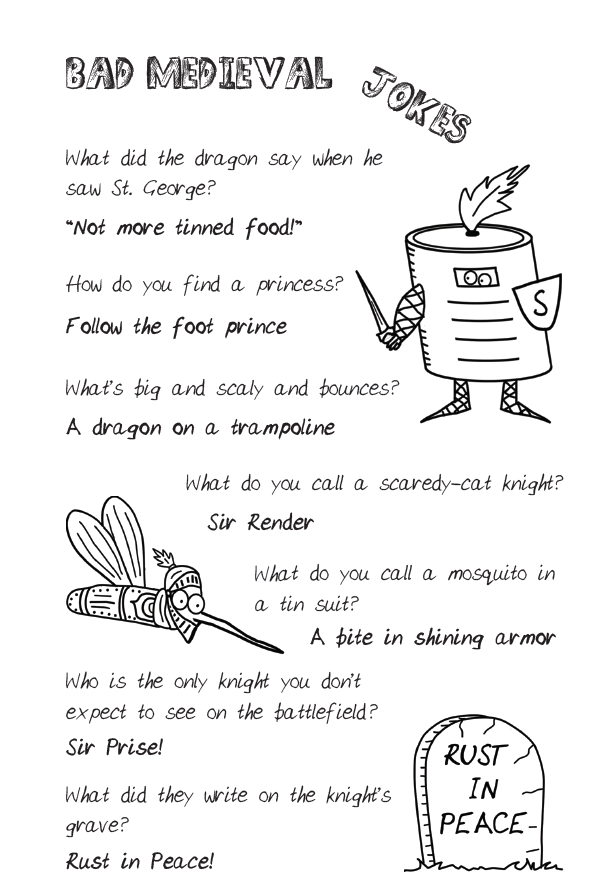 BAD MEDIEVAL JOKES
What did the dragon say when he
saw St. George?
“Not more tinned food!”
How do you find a princess?
Follow the foot prince
What's big and scaly and bounces?
A dragon on a trampoline
S
What do you call a scaredy-cat knight?
Sir Render
What do you call a mosquito in
a tin suit?
A bite in shining armor
Who is the only knight you don't
expect to see on the battlefield?
Sir Prise!
What did they write on the knight's
grave?
Rust in Peace!
RUST
IN
PEACE